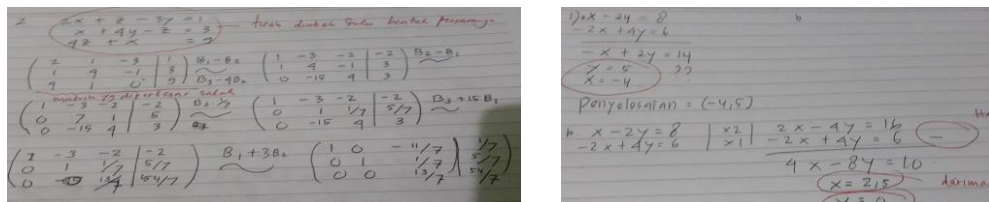 2 2x + z - 3y = 1
x + 4y - z = 3
4z + x = 2
tidak diubah dulu bentuk
( 2 1 -3 | 1
1 4 -1 | 3
4 1 0 | 2 ) B1-B2 B3-4B2 ( 1 -3 -2 | -2
1 4 -1 | 3
0 -15 4 | 3 ) B2-B1
matriks yg diperbesar salah
( 1 -3 -2 | -2
0 7 1 | 5
0 -15 4 | 3 ) B2 1/7 ( 1 -3 -2 | -2
0 1 1/7 | 5/7
0 -15 4 | 3 ) B3+15B1
( 1 -3 -2 | -2
0 1 1/7 | 5/7
0 13/7 | 54/7 ) B1+3B2 ( 1 0 -11/7 | 1/7
0 1 1/7 | 5/7
0 0 13/7 | 54/7 )
1) a x - 2y = 8
-2x + 4y = 6
-x + 2y = 14
y = 5
x = -4 ??
Penyelesaian = (-4,5)
b
b x - 2y = 8 | x2 | 2x - 4y = 16
-2x + 4y = 6 | x1 | -2x + 4y = 6 -
4x - 8y = 10
x = 2,5